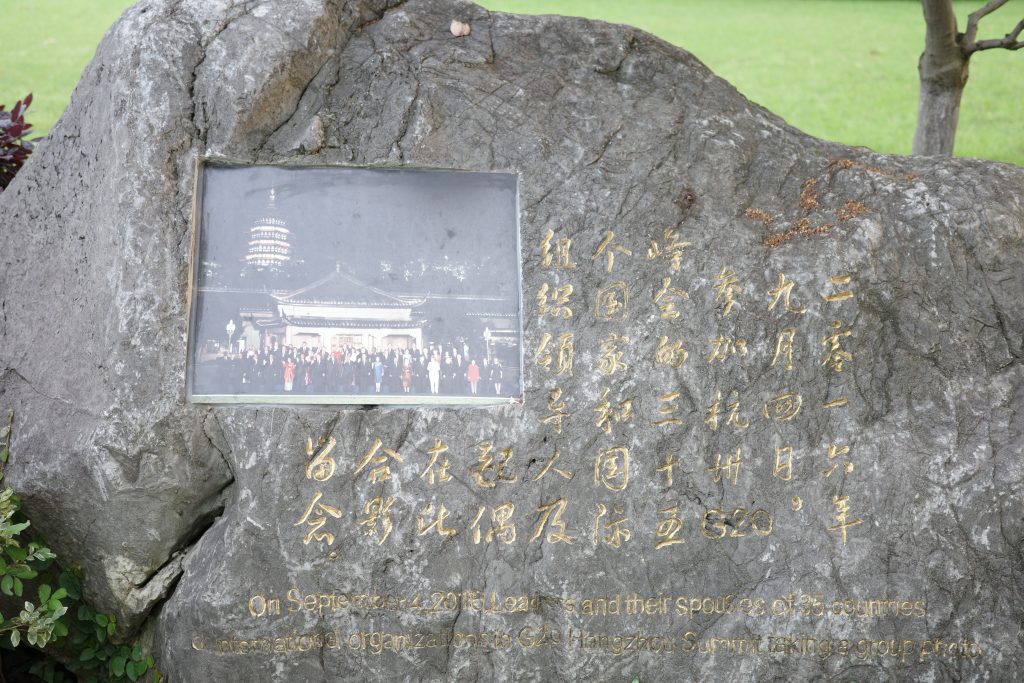 二零一六年
九月四日，
参加杭州G20
峰会的三十五
个国家和国际
组织领导人及
配偶
在此
合影
留念。
On September 4, 2016, Leaders and their spouses of 35 countries
international organizations in G20 Hangzhou Summit taking a group photo.